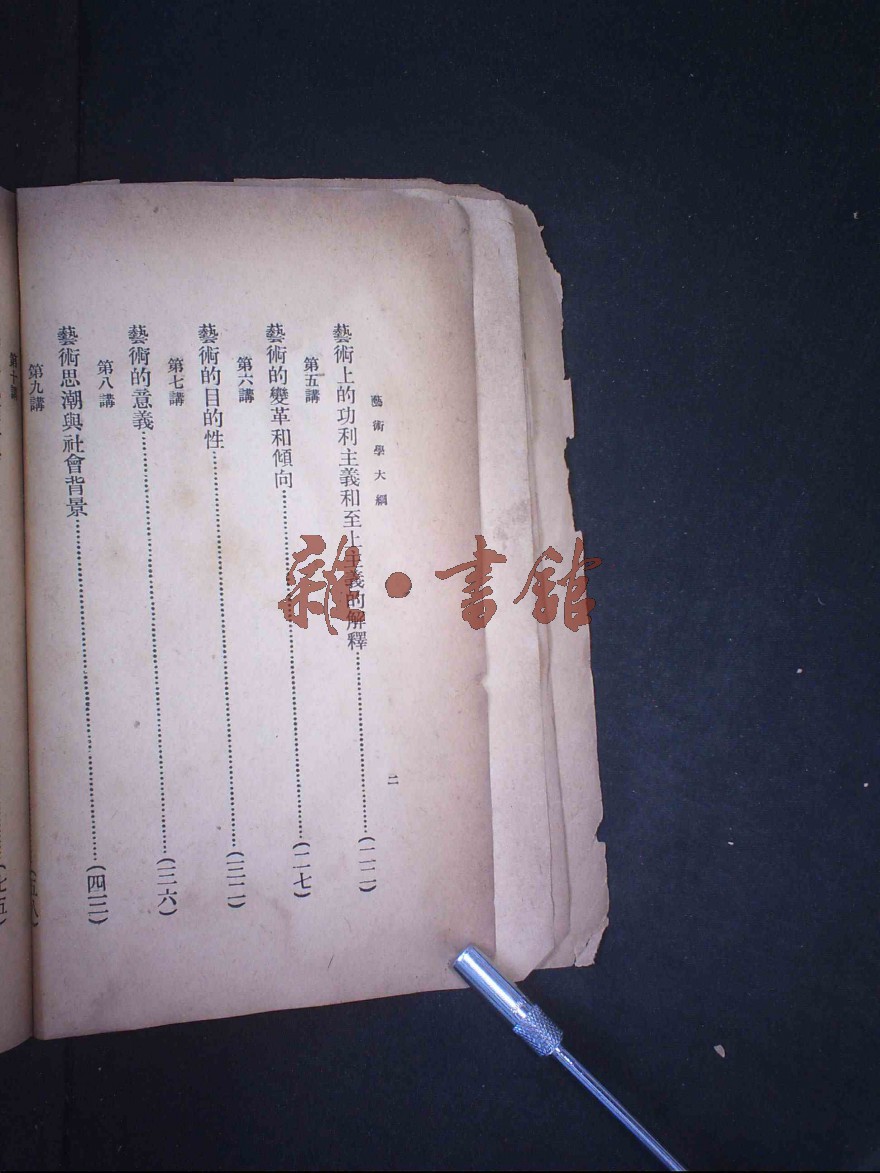 藝術學大綱 二
藝術上的功利主義和至上主義的解釋……(二二)
第五講
藝術的變革和傾向……(二七)
第六講
藝術的目的性……(三二)
第七講
藝術的意義……(三六)
第八講
藝術思潮與社會背景……(四三)
第九講
(五八)
第十講
(七五)
雜·書館